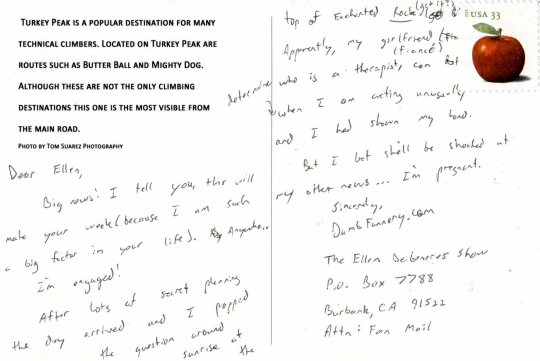 TURKEY PEAK IS A POPULAR DESTINATION FOR MANY
TECHNICAL CLIMBERS. LOCATED ON TURKEY PEAK ARE
ROUTES SUCH AS BUTTER BALL AND MIGHTY DOG.
ALTHOUGH THESE ARE NOT THE ONLY CLIMBING
DESTINATIONS THIS ONE IS THE MOST VISIBLE FROM
THE MAIN ROAD.
PHOTO BY TOM SUAREZ PHOTOGRAPHY
Dear Ellen,
Big news! I tell you, this will
make your week (because I am such
a big factor in your life). Anywhere
I'm engaged!
After lots of secret planning
the day arrived and I popped
the question around
sunrise at the
top of Enchanted Rock (get it?)
Apparently, my girlfriend
(fiancé)
who is a therapist, can
determine
when I am acting unusually
and I had shown my hand.
But I bet she'll be shocked at
my other news... I'm pregnant.
Sincerely,
DumbFunnery.com
The Ellen DeGeneres Show
P.O. Box 7788
Burbank, CA 91522
Attn: Fan Mail
USA 33